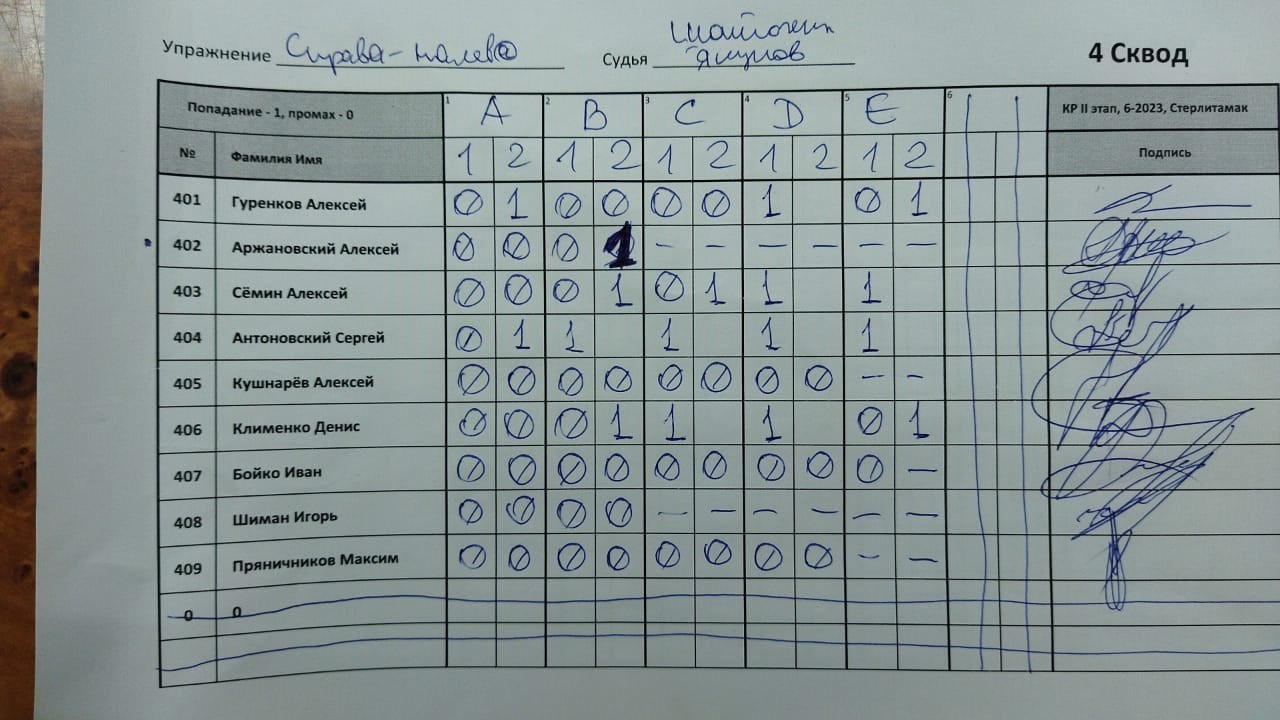 Упражнение Справа-налево Судья Якупов 4 Сквод
Попадание - 1, промах - 0 1 A 2 B 3 C 4 D 5 E 6 КР II этап, 6-2023, Стерлитамак
№ Фамилия Имя 1 2 1 2 1 2 1 2 1 2 Подпись
401 Гуренков Алексей 0 1 0 0 0 0 1 0 1
402 Аржановский Алексей 0 0 0 1 - - - - - -
403 Сёмин Алексей 0 0 0 1 0 1 1 1
404 Антоновский Сергей 0 1 1 1 1 1
405 Кушнарёв Алексей 0 0 0 0 0 0 0 0 - -
406 Клименко Денис 0 0 0 1 1 1 0 1
407 Бойко Иван 0 0 0 0 0 0 0 0 0 -
408 Шиман Игорь 0 0 0 0 - - - - - -
409 Пряничников Максим 0 0 0 0 0 0 0 0 - -
0 0